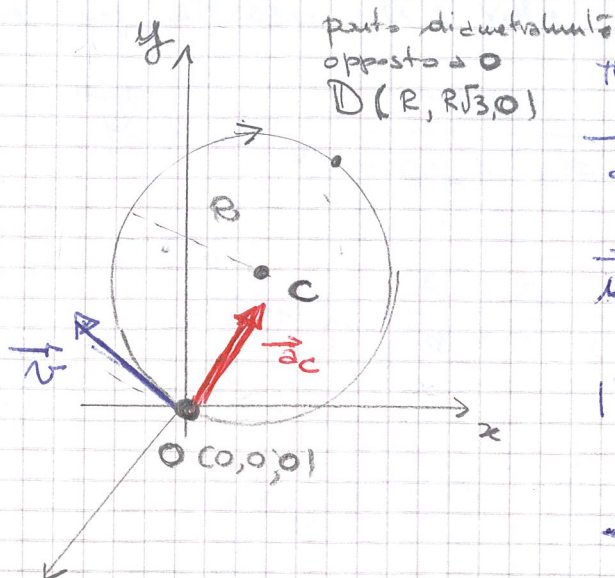 punto diametralmente
opposto a O
D (R, R√3, 0)
y
R
C
v
a_c
x
O (0,0,0)